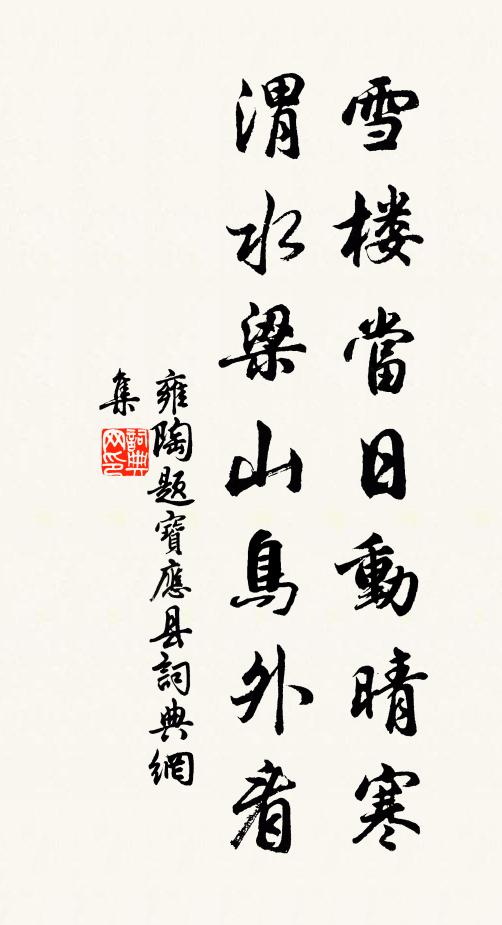 雪楼當日動晴寒
渭水梁山鳥外看
雍陶題寶應县詞典網
集
詞典
网印